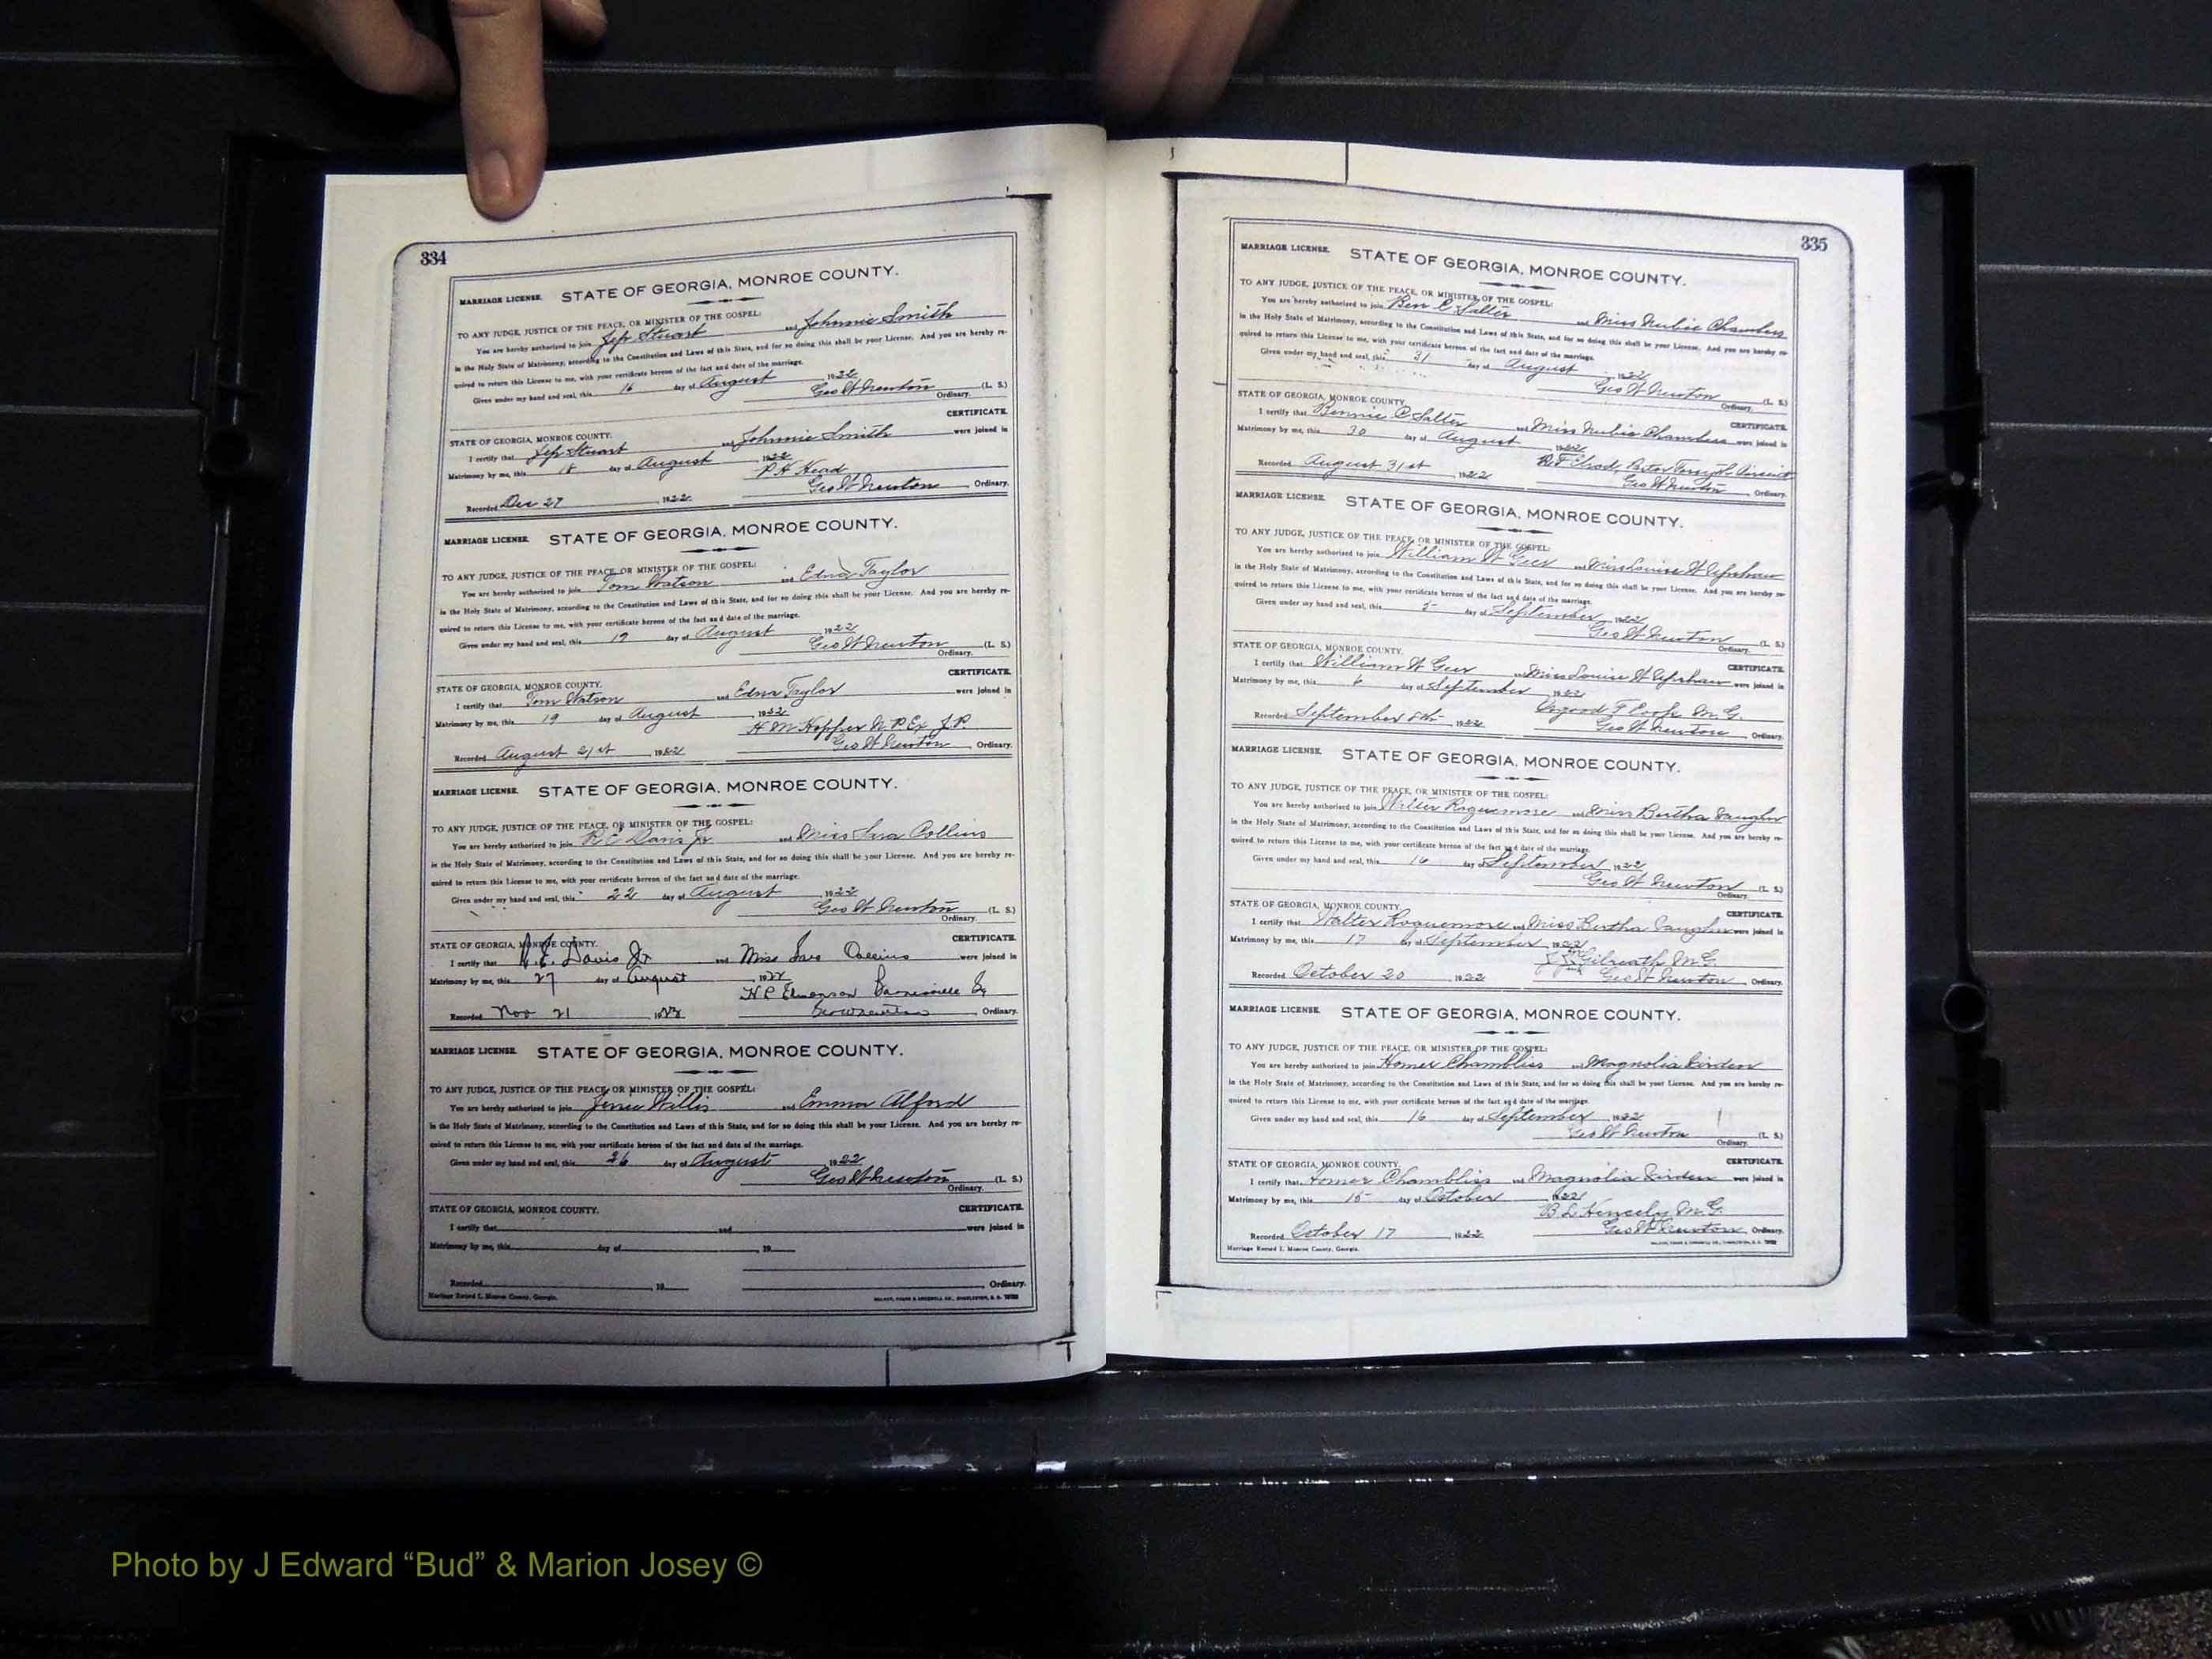 334
MARRIAGE LICENSE. STATE OF GEORGIA, MONROE COUNTY.
TO ANY JUDGE, JUSTICE OF THE PEACE, OR MINISTER OF THE GOSPEL:
You are hereby authorized to join Jep Stuart and Johnnie Smith
in the Holy State of Matrimony, according to the Constitution and Laws of this State, and for so doing this shall be your License. And you are hereby re-
quired to return this License to me, with your certificate hereon of the fact and date of the marriage.
Given under my hand and seal, this 16 day of August 1922
Geo W Newton (L. S.)
Ordinary.
CERTIFICATE.
STATE OF GEORGIA, MONROE COUNTY.
I certify that Jep Stuart and Johnnie Smith were joined in
Matrimony by me, this 18 day of August 1922
P H Head
Recorded Dec 27 1922 Geo W Newton, Ordinary.
MARRIAGE LICENSE. STATE OF GEORGIA, MONROE COUNTY.
TO ANY JUDGE, JUSTICE OF THE PEACE, OR MINISTER OF THE GOSPEL:
You are hereby authorized to join Tom Watson and Edna Taylor
in the Holy State of Matrimony, according to the Constitution and Laws of this State, and for so doing this shall be your License. And you are hereby re-
quired to return this License to me, with your certificate hereon of the fact and date of the marriage.
Given under my hand and seal, this 19 day of August 1922
Geo W Newton (L. S.)
Ordinary.
CERTIFICATE.
STATE OF GEORGIA, MONROE COUNTY.
I certify that Tom Watson and Edna Taylor were joined in
Matrimony by me, this 19 day of August, 1922
H M Hopper N. P. Ex J. P.
Recorded August 21st 1922 Geo W Newton, Ordinary.
MARRIAGE LICENSE. STATE OF GEORGIA, MONROE COUNTY.
TO ANY JUDGE, JUSTICE OF THE PEACE, OR MINISTER OF THE GOSPEL:
You are hereby authorized to join R E Davis Jr and Miss Sara Collins
in the Holy State of Matrimony, according to the Constitution and Laws of this State, and for so doing this shall be your License. And you are hereby re-
quired to return this License to me, with your certificate hereon of the fact and date of the marriage.
Given under my hand and seal, this 22 day of August, 1922
Geo W Newton (L. S.)
Ordinary.
CERTIFICATE.
STATE OF GEORGIA, MONROE COUNTY.
I certify that Davis Jr and Miss Sara Collins were joined in
Matrimony by me, this 27 day of August, 1922
Barnesville Ga
Recorded Nov 21 Geo W Newton, Ordinary.
MARRIAGE LICENSE. STATE OF GEORGIA, MONROE COUNTY.
TO ANY JUDGE, JUSTICE OF THE PEACE, OR MINISTER OF THE GOSPEL:
You are hereby authorized to join Jessie Willis and Emma Alford
in the Holy State of Matrimony, according to the Constitution and Laws of this State, and for so doing this shall be your License. And you are hereby re-
quired to return this License to me, with your certificate hereon of the fact and date of the marriage.
Given under my hand and seal, this 26 day of August 1922
Geo W Newton (L. S.)
Ordinary.
STATE OF GEORGIA, MONROE COUNTY. CERTIFICATE.
I certify that and were joined in
Matrimony by me, this day of , 19
Recorded , 19 , Ordinary.
Marriage Record I. Monroe County, Georgia.
335
MARRIAGE LICENSE. STATE OF GEORGIA, MONROE COUNTY.
TO ANY JUDGE, JUSTICE OF THE PEACE, OR MINISTER OF THE GOSPEL:
You are hereby authorized to join Ben C Salter and Miss Nubie Chambers
in the Holy State of Matrimony, according to the Constitution and Laws of this State, and for so doing this shall be your License. And you are hereby re-
quired to return this License to me, with your certificate hereon of the fact and date of the marriage.
Given under my hand and seal, this 31 day of August, 1922
Geo W Newton (L. S.)
Ordinary.
STATE OF GEORGIA, MONROE COUNTY. CERTIFICATE.
I certify that Bennie C Salter and Miss Nubie Chambers were joined in
Matrimony by me, this 30 day of August 1922
Elrod, Pastor Forsyth Circuit
Recorded August 31st 1922 Geo W Newton, Ordinary.
MARRIAGE LICENSE. STATE OF GEORGIA, MONROE COUNTY.
TO ANY JUDGE, JUSTICE OF THE PEACE, OR MINISTER OF THE GOSPEL:
You are hereby authorized to join William W Geer and Miss Louise H Upshaw
in the Holy State of Matrimony, according to the Constitution and Laws of this State, and for so doing this shall be your License. And you are hereby re-
quired to return this License to me, with your certificate hereon of the fact and date of the marriage.
Given under my hand and seal, this 5 day of September, 1922
Geo W Newton (L. S.)
Ordinary.
STATE OF GEORGIA, MONROE COUNTY. CERTIFICATE.
I certify that William W Geer and Miss Louise H Upshaw were joined in
Matrimony by me, this 6 day of September, 1922
Osgood F Cook M. G.
Recorded September 8th 1922 Geo W Newton, Ordinary.
MARRIAGE LICENSE. STATE OF GEORGIA, MONROE COUNTY.
TO ANY JUDGE, JUSTICE OF THE PEACE, OR MINISTER OF THE GOSPEL:
You are hereby authorized to join Walter Roquemore and Miss Bertha Vaughn
in the Holy State of Matrimony, according to the Constitution and Laws of this State, and for so doing this shall be your License. And you are hereby re-
quired to return this License to me, with your certificate hereon of the fact and date of the marriage.
Given under my hand and seal, this 16 day of September, 1922
Geo W Newton (L. S.)
Ordinary.
STATE OF GEORGIA, MONROE COUNTY. CERTIFICATE.
I certify that Walter Roquemore and Miss Bertha Vaughn were joined in
Matrimony by me, this 17 day of September, 1922
Gilreath M. G.
Recorded October 20 1922 Geo W Newton, Ordinary.
MARRIAGE LICENSE. STATE OF GEORGIA, MONROE COUNTY.
TO ANY JUDGE, JUSTICE OF THE PEACE, OR MINISTER OF THE GOSPEL:
You are hereby authorized to join Homer Chambliss and Magnolia Girden
in the Holy State of Matrimony, according to the Constitution and Laws of this State, and for so doing this shall be your License. And you are hereby re-
quired to return this License to me, with your certificate hereon of the fact and date of the marriage.
Given under my hand and seal, this 16 day of September, 1922
Geo W Newton (L. S.)
Ordinary.
STATE OF GEORGIA, MONROE COUNTY. CERTIFICATE.
I certify that Homer Chambliss and Magnolia Girden were joined in
Matrimony by me, this 15 day of October 1922
B L Hencely M. G.
Recorded October 17 1922 Geo W Newton, Ordinary.
Marriage Record I. Monroe County, Georgia.
Photo by J Edward “Bud” & Marion Josey ©